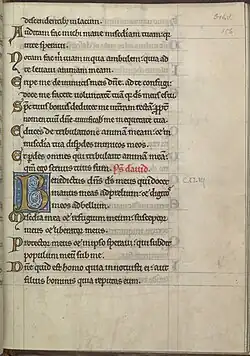 descendentibus in lacum.
Auditam fac michi mane misericordiam tuam: quia
in te speravi.
Notam fac michi viam in qua ambulem: quia ad
te levavi animam meam.
Eripe me de inimicis meis domine ad te confugi:
doce me facere voluntatem tuam quia deus meus es tu.
Spiritus tuus bonus deducet me in terram rectam: propter
nomen tuum domine vivificabis me in equitate tua.
Educes de tribulatione animam meam: et in
misericordia tua disperdes inimicos meos.
Et perdes omnes qui tribulant animam meam:
quoniam ego servus tuus sum.
Benedictus dominus deus meus qui docet
manus meas ad prelium: et digitos
meos ad bellum.
Misericordia mea et refugium meum: susceptor
meus et liberator meus.
Protector meus et in ipso speravi: qui subdit
populum meum sub me.
Domine quid est homo quia innotuisti ei: aut
filius hominis quia reputas eum.